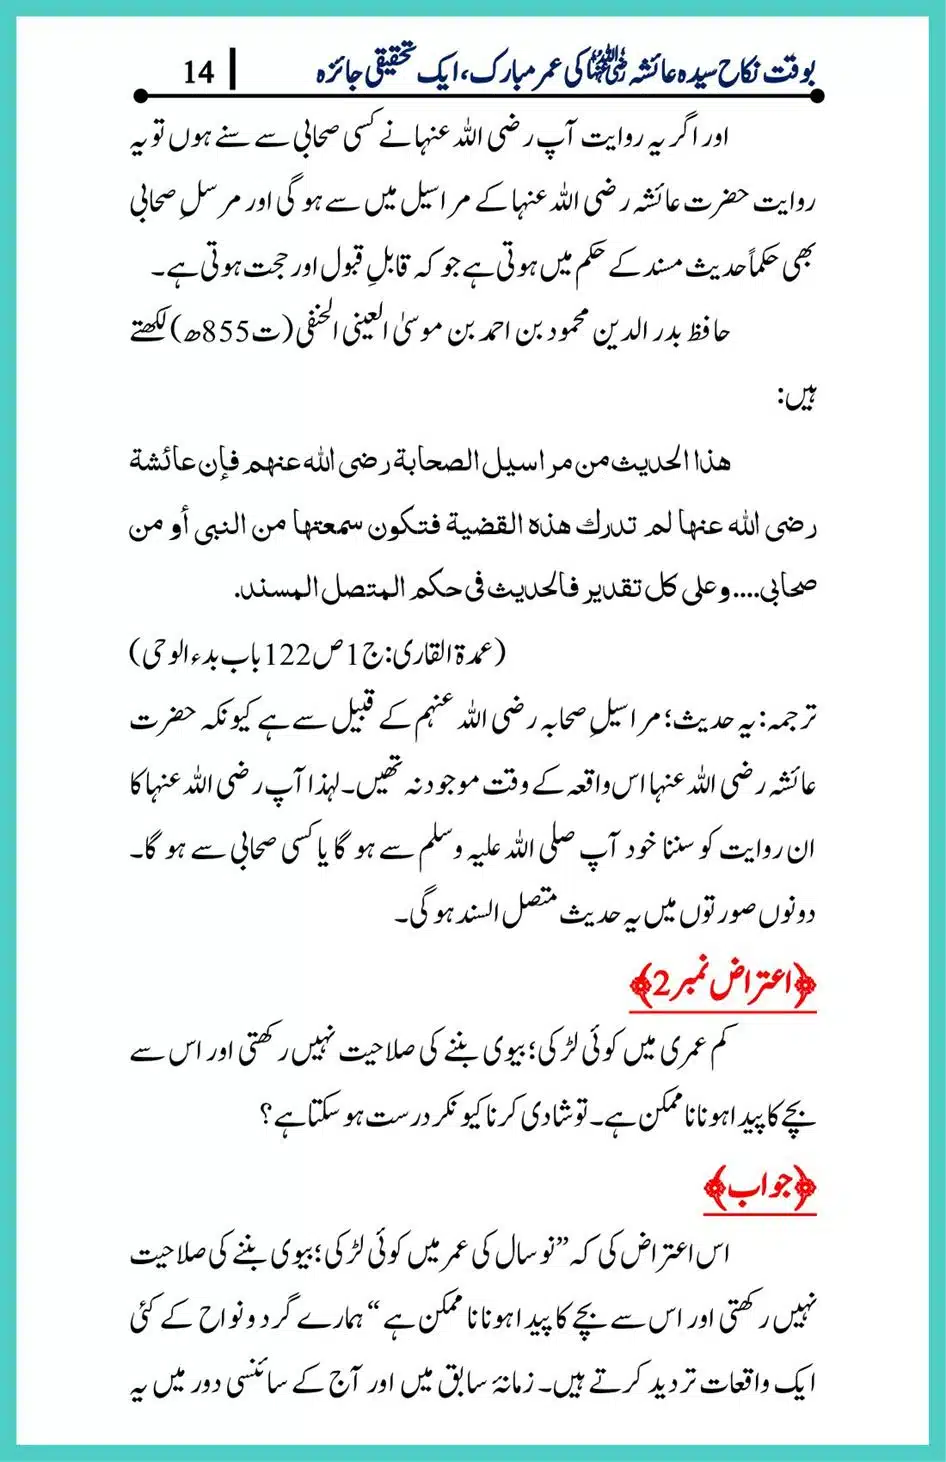 بوقت نکاح سیدہ عائشہ رضی اللہ عنہا کی عمر مبارک، ایک تحقیقی جائزہ | 14
اور اگر یہ روایت آپ رضی اللہ عنہا نے کسی صحابی سے سنے ہوں تو یہ
روایت حضرت عائشہ رضی اللہ عنہا کے مراسیل میں سے ہو گی اور مرسلِ صحابی
بھی حکماً حدیث مسند کے حکم میں ہوتی ہے جو کہ قابلِ قبول اور حجت ہوتی ہے۔
حافظ بدر الدین محمود بن احمد بن موسیٰ العینی الحنفی (ت855ھ) لکھتے
ہیں:
هذا الحديث من مراسيل الصحابة رضى الله عنهم فإن عائشة
رضى الله عنها لم تدرك هذه القضية فتكون سمعتها من النبى أو من
صحابى.... وعلى كل تقدير فالحديث فى حكم المتصل المسند.
(عمدۃ القاری: ج1 ص122 باب بدء الوحی)
ترجمہ: یہ حدیث؛ مراسیلِ صحابہ رضی اللہ عنہم کے قبیل سے ہے کیونکہ حضرت
عائشہ رضی اللہ عنہا اس واقعہ کے وقت موجود نہ تھیں۔ لہذا آپ رضی اللہ عنہا کا
ان روایت کو سننا خود آپ صلی اللہ علیہ وسلم سے ہو گا یا کسی صحابی سے ہو گا۔
دونوں صورتوں میں یہ حدیث متصل السند ہو گی۔
﴿اعتراض نمبر 2﴾
کم عمری میں کوئی لڑکی؛ بیوی بننے کی صلاحیت نہیں رکھتی اور اس سے
بچے کا پیدا ہونا نا ممکن ہے۔ تو شادی کرنا کیونکر درست ہو سکتا ہے؟
﴿جواب﴾
اس اعتراض کی کہ ”نو سال کی عمر میں کوئی لڑکی؛ بیوی بننے کی صلاحیت
نہیں رکھتی اور اس سے بچے کا پیدا ہونا نا ممکن ہے“ ہمارے گرد و نواح کے کئی
ایک واقعات تردید کرتے ہیں۔ زمانۂ سابق میں اور آج کے سائنسی دور میں یہ